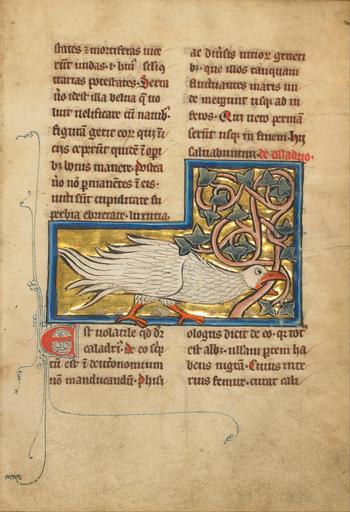 states & mortiferas uice
rūt undas. ⁊ hui᷒ sclīq
citarias potestates. Serra
u̾o idest illa belua q̄ uo
luit uelificare cū nauib᷒.
figurā gerit eor qui ī
cijs ceperūt quidē ī opi
b᷒ bonis manere. Postea
u̾o nō p̄manētes ī eis.
uicti sūt cupiditate su
perbia ebrietate. luxuria.
ac diu̾sis uitior generi
b᷒. que illos tanquam
fluctuantes maris un
de mergunt usq; ad in
feros. Qui uero permā
serūt usq; in finem. hij
saluabuntur. de caladrio.
Est uolatile qd dr̄
caladri᷒. de eo scp̄
tū est ī deutronomium
nō manducandū. Phisi
ologus dicit de eo. q̄ tot᷒
est alb᷒. nllam p̄tem ha
bens nigrā. Cuius inte
rius femur. curat cali